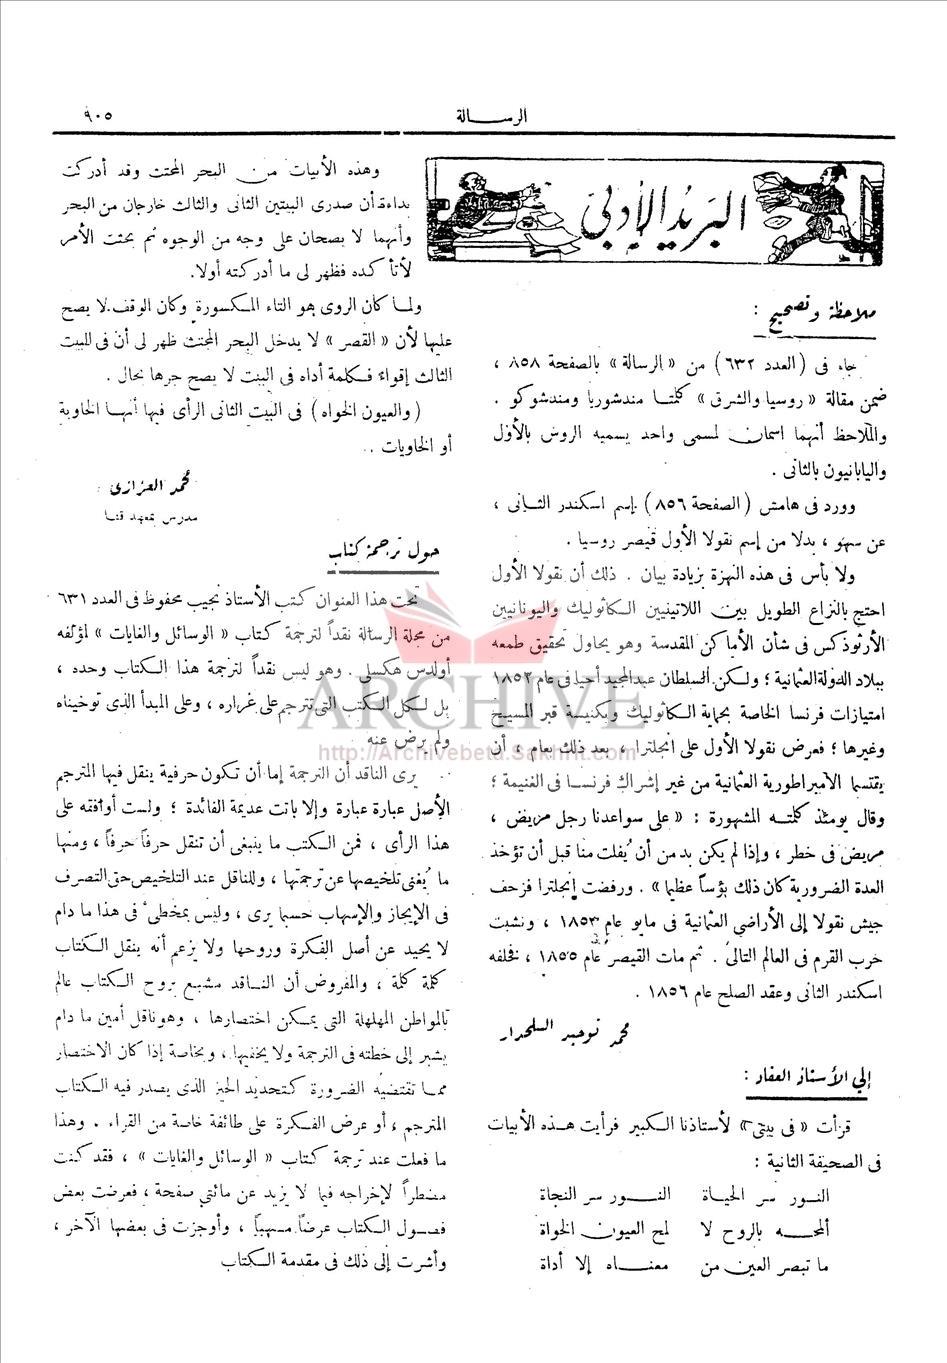 الرسالة
٩٠٥
البريد الأدبي
ملاحظة وتصحيح :
جاء فى ( العدد ٦٣٢ ) من « الرسالة » بالصفحة ٨٥٨ ،
ضمن مقالة « روسيا والشرق » كلمتا مندشوريا ومندشوكو .
والملاحظ أنهما اسمان لمسمى واحد يسميه الروس بالأول
واليابانيون بالثانى .
وورد فى هامش ( الصفحة ٨٥٦ ) إسم اسكندر الثانى ،
عن سهو ، بدلا من إسم نقولا الأول قيصر روسيا .
ولا بأس فى هذه النهزة بزيادة بيان . ذلك أن نقولا الأول
احتج بالنزاع الطويل بين اللاتينيين الكاثوليك واليونانيين
الأرثوذكس فى شأن الأماكن المقدسة وهو يحاول تحقيق طمعه
ببلاد الدولة العثمانية ؛ ولكن السلطان عبدالمجيد أحيا فى عام ١٨٥٢
امتيازات فرنسا الخاصة بحماية الكاثوليك وبكنيسة قبر المسيح
وغيرها ؛ فعرض نقولا الأول على انجلترا ، بعد ذلك بعام ، أن
يقتسما الامبراطورية العثمانية من غير إشراك فرنسا فى الغنيمة ؛
وقال يومئذ كلمته المشهورة : « على سواعدنا رجل مريض ،
مريض فى خطر ، وإذا لم يكن بد من أن يُفلت منا قبل أن تؤخذ
العدة الضرورية كان ذلك بؤساً عظيما » . ورفضت إنجلترا فزحف
جيش نقولا إلى الأراضي العثمانية فى مايو عام ١٨٥٣ ، ونشبت
حرب القرم فى العام التالى . ثم مات القيصر فى عام ١٨٥٥ ، فخلفه
اسكندر الثانى وعقد الصلح عام ١٨٥٦ .
محمد توحيد السلحدار
إلى الأستاذ العقاد :
قرأت « فى بيتى » لأستاذنا الكبير فرأيت هذه الأبيات
فى الصحيفة الثانية :
النور سر الحياة النور سر النجاة
ألمحه بالروح لا لمح العيون الخواة
ما تبصر العين من معناه إلا أداة
وهذه الأبيات من البحر المجتث وقد أدركت
بداءة أن صدرى البيتين الثانى والثالث خارجان من البحر
وأنهما لا يصحان على وجه من الوجوه ثم بحثت الأمر
لأتأكده فظهر لى ما أدركته أولا.
ولما كان الروى هو التاء المكسورة وكان الوقف لا يصح
عليها لأن « القصر » لا يدخل البحر المجتث ظهر لى أن فى البيت
الثالث إقواء فكلمة أداه فى البيت لا يصح جرها بحال .
( والعيون الخواه ) فى البيت الثانى الرأى فيها أنها الخاوية
أو الخاويات ..
محمد العزازى
مدرس بمعهد قنا
حول ترجمة كتاب
تحت هذا العنوان كتب الأستاذ نجيب محفوظ فى العدد ٦٣١
من مجلة الرسالة نقداً لترجمة كتاب « الوسائل والغايات » لمؤلفه
أولدس هكسلى . وهو ليس نقداً لترجمة هذا الكتاب وحده ،
بل لكل الكتب التى تترجم على غراره ، وعلى المبدأ الذى توخيناه
ولم يرض عنه
يرى الناقد أن الترجمة إما أن تكون حرفية ينقل فيها المترجم
الأصل عبارة عبارة وإلا باتت عديمة الفائدة ؛ ولست أوافقه على
هذا الرأى ، فمن الكتب ما ينبغى أن تنقل حرفاً حرفاً ، ومنها
ما يُغنى تلخيصها عن ترجمتها ، وللناقل عند التلخيص حق التصرف
فى الإيجاز والإسهاب حسبما يرى ، وليس بمخطىء فى هذا ما دام
لا يحيد عن أصل الفكرة وروحها ولا يزعم أنه ينقل الكتاب
كلمة كلمة ، والمفروض أن الناقد مشبع بروح الكتاب عالم
بالمواطن المهلهلة التى يمكن اختصارها ، وهو ناقل أمين ما دام
يشير إلى خطته فى الترجمة ولا يخفيها ، وبخاصة إذا كان الاختصار
مما تقتضيه الضرورة كتحديد الحيز الذى يصدر فيه الكتاب
المترجم ، أو عرض الفكرة على طائفة خاصة من القراء . وهذا
ما فعلت عند ترجمة كتاب « الوسائل والغايات » ، فقد كنت
مضطراً لإخراجه فيما لا يزيد عن مائتى صفحة ، فعرضت بعض
فصول الكتاب عرضاً مسهباً ، وأوجزت فى بعضها الآخر ،
وأشرت إلى ذلك فى مقدمة الكتاب
ARCHIVE
http://Archivebeta.Sakhrit.com